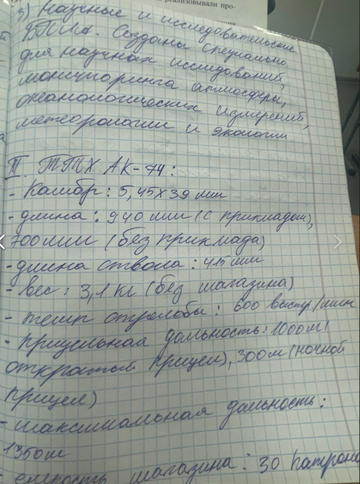 реализовали про-
3) Научные и исследовательские
БПЛА. Созданы специально
для научных исследований,
мониторинга атмосферы,
океанологических измерений,
метеорологии и экологии
II. ТТХ АК-74:
- Калибр: 5,45х39 мм
- длина: 940 мм (с прикладом),
700 мм (без приклада)
- длина ствола: 415 мм
- вес: 3,1 кг (без магазина)
- темп стрельбы: 600 выстр/мин
- прицельная дальность: 1000м (
открытый прицел), 300м (ночной
прицел)
- максимальная дальность:
1350м
- емкость магазина: 30 патроно